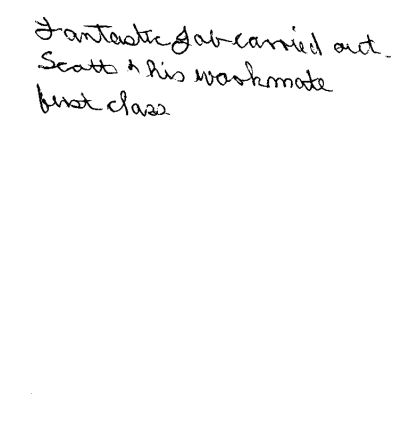 Fantastic Job carried out.
Scott & his workmate
first class